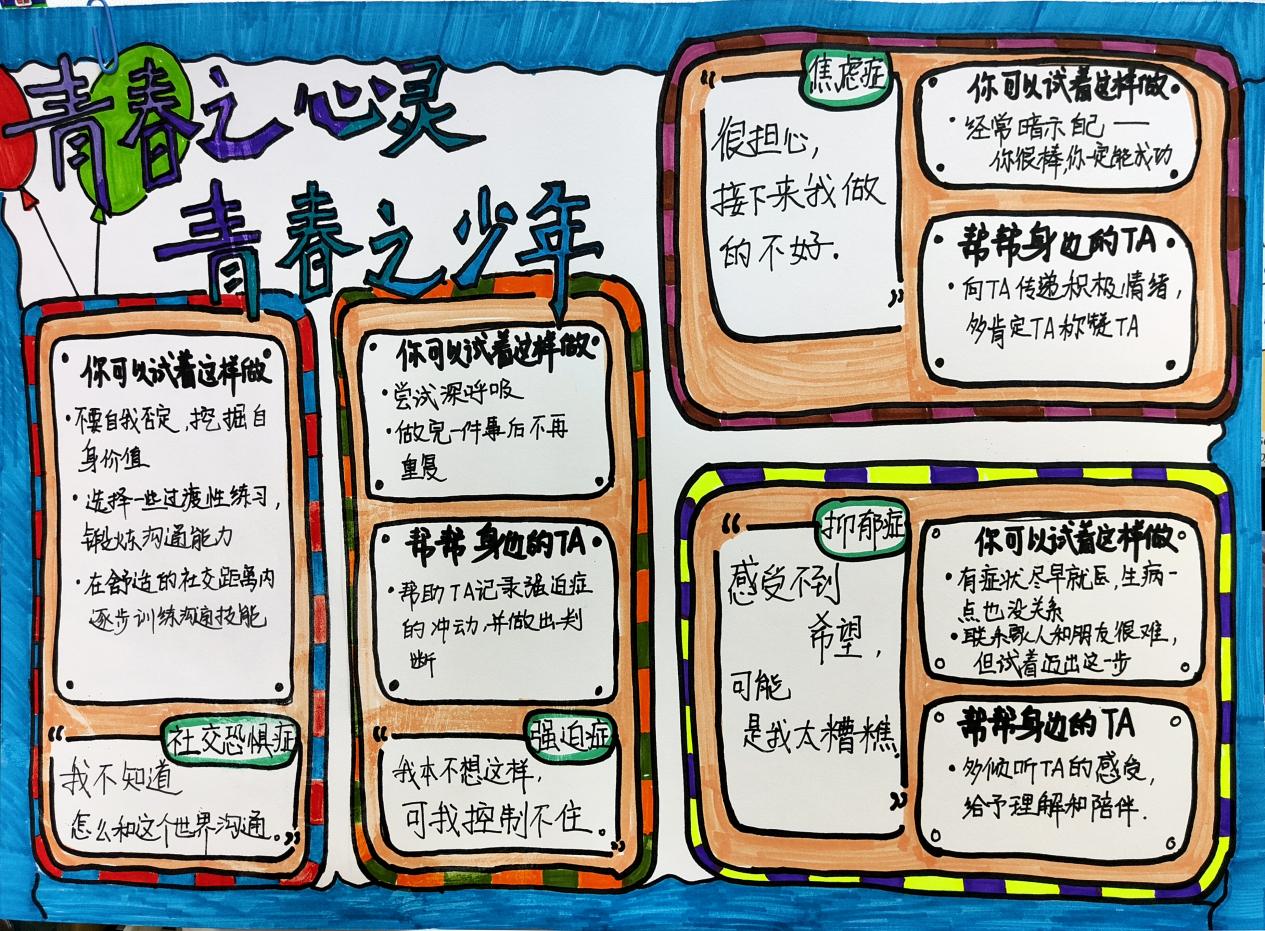 青春之心灵
青春之少年
你可以试着这样做
·不要自我否定,挖掘自
身价值
·选择一些过渡性练习,
锻炼沟通能力
·在舒适的社交距离内
逐步训练沟通技能
社交恐惧症
“我不知道
怎么和这个世界沟通。”
你可以试着这样做
·尝试深呼吸
·做完一件事后不再
重复
帮帮身边的TA
·帮助TA记录强迫症
的冲动,并做出判
断
强迫症
“我本不想这样,
可我控制不住。”
焦虑症
“很担心,
接下来我做
的不好.”
你可以试着这样做
·经常暗示自己——
你很棒,你一定能成功
帮帮身边的TA
·向TA传递积极情绪,
多肯定TA称赞TA
抑郁症
“感受不到
希望,
可能
是我太糟糕”
你可以试着这样做
·有症状尽早就医,生病一
点也没关系
·联系家人和朋友很难,
但试着迈出这一步
帮帮身边的TA
·多倾听TA的感受,
给予理解和陪伴.